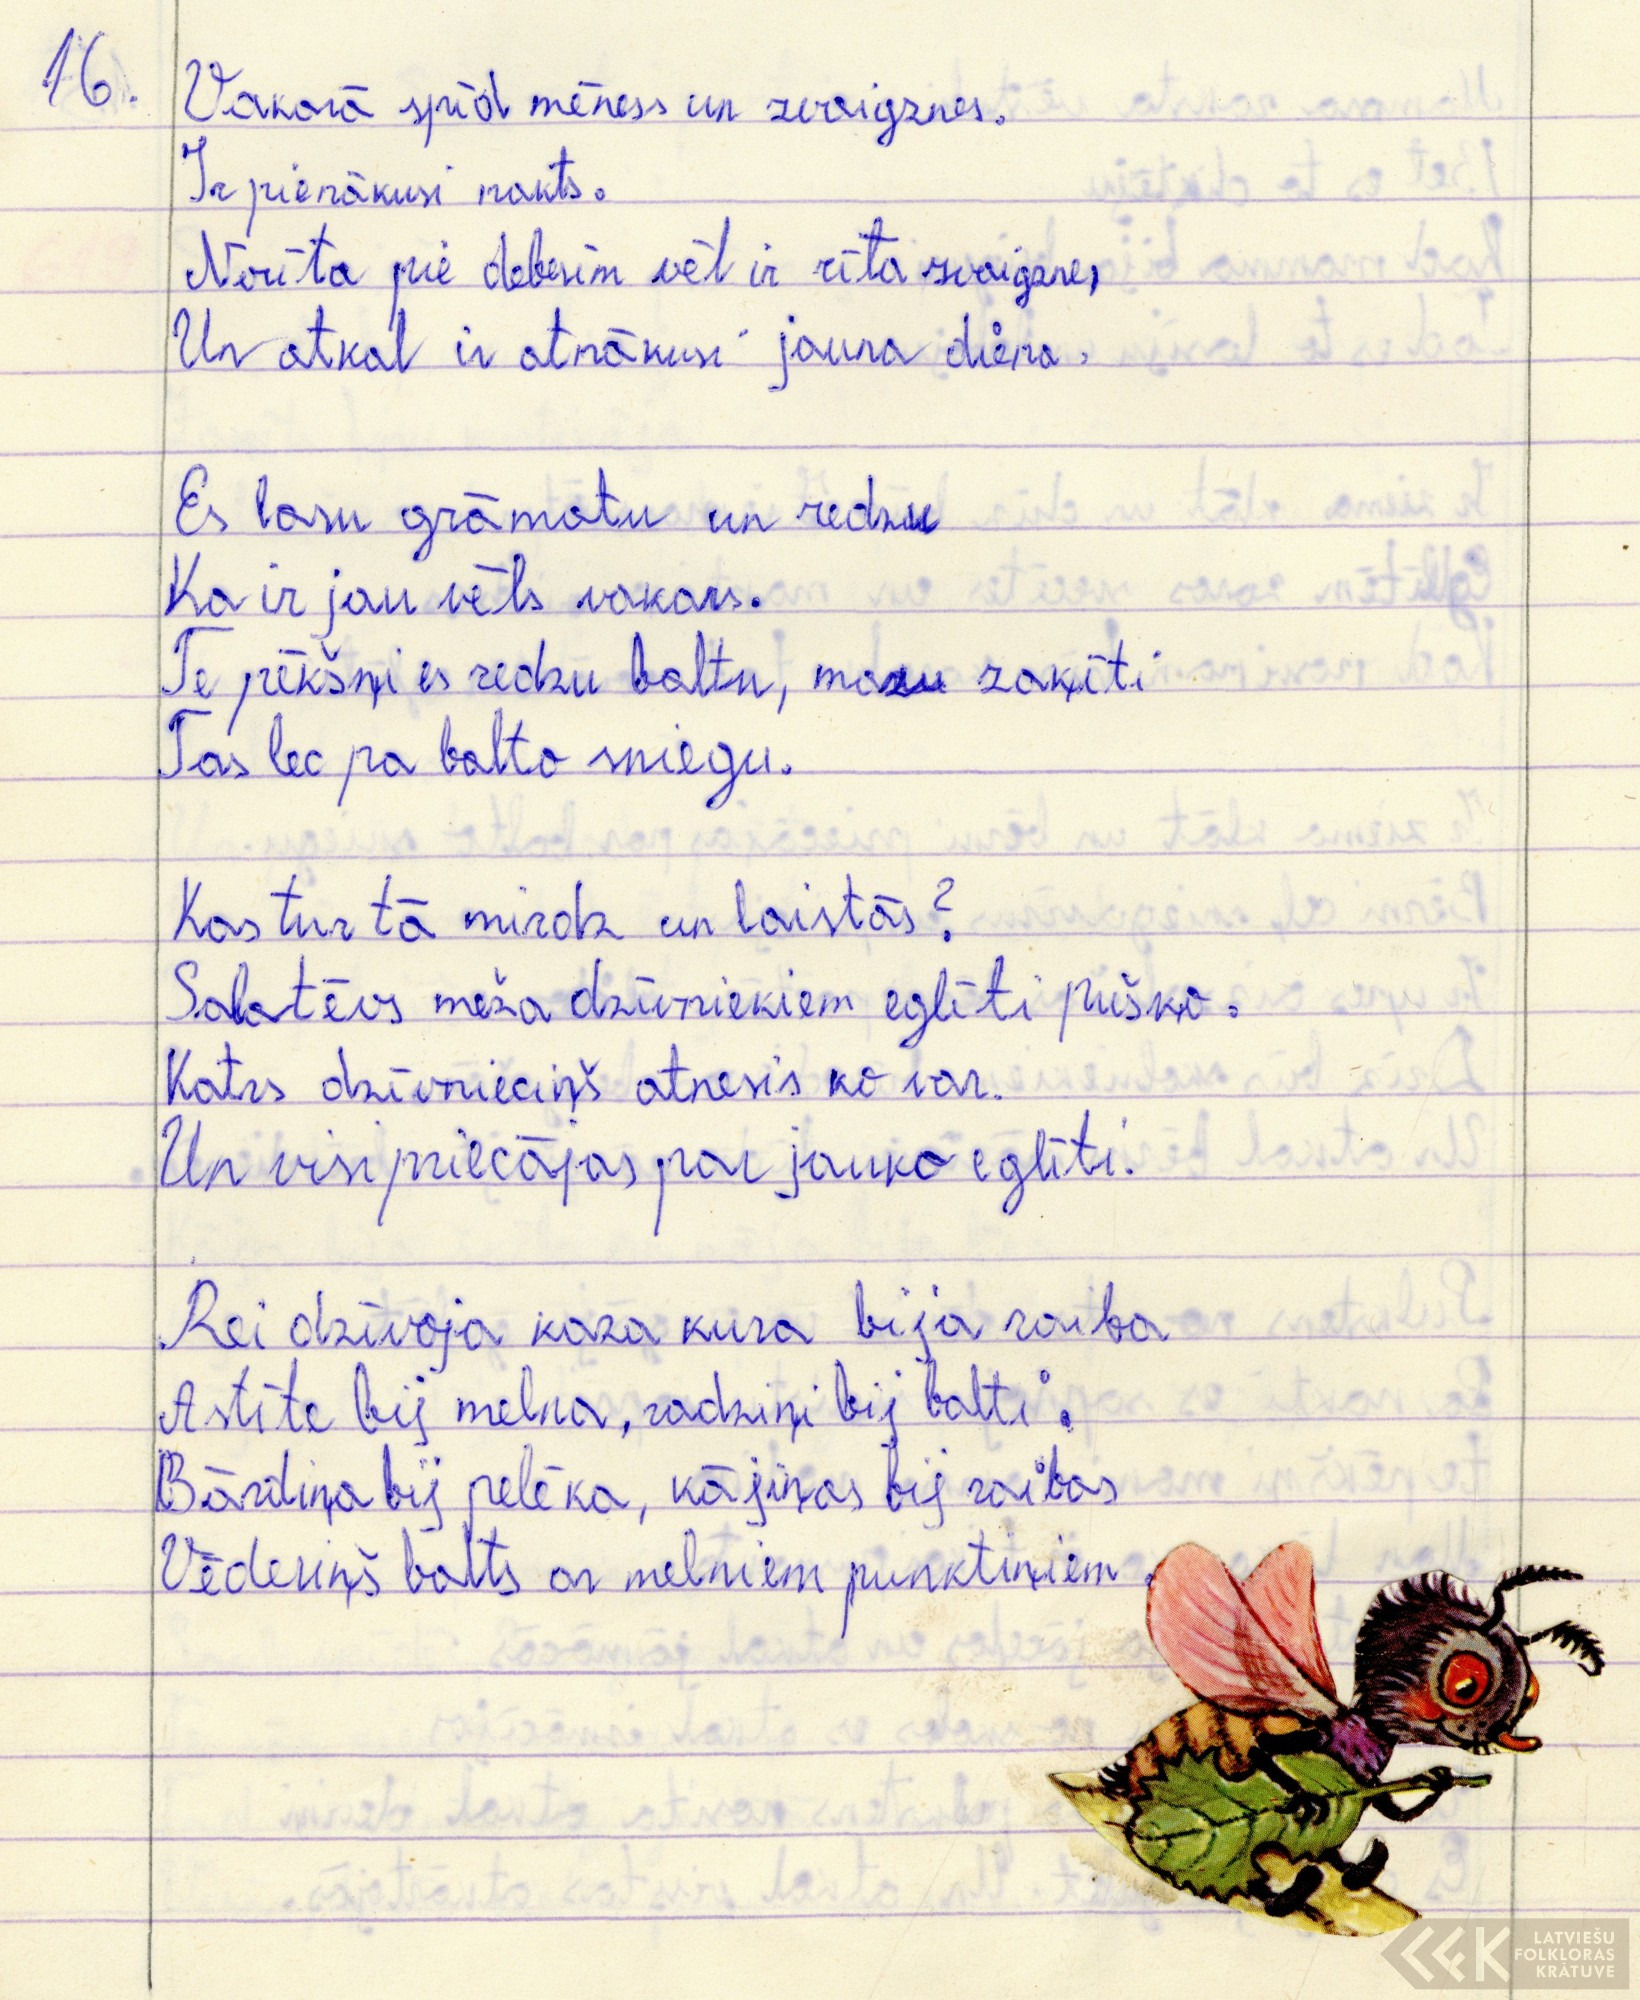 16.
Vakarā spīd mēness un zvaigznes.
Ir pienākusi nakts.
No rīta pie debesīm vēl ir rīta zvaigzne,
Un atkal ir atnākusi jauna diena.
Es lasu grāmatu un redzu
Ka ir jau vēls vakars.
Te pēkšņi es redzu baltu, mazu zaķīti
Tas lec pa balto sniegu.
Kas tur tā mirdz un laistās?
Salatēvs meža dzīvniekiem eglīti puško.
Katrs dzīvnieciņš atnesīs ko var.
Un visi priecājas par jauko eglīti.
Rei dzīvoja kaza kura bija raiba
Astīte bij melna, radziņi bij balti.
Bārdiņa bij pelēka, kājiņas bij raibas
Vēderiņš balts ar melniem punktiņiem.
LATVIEŠU
FOLKLORAS
KRĀTUVE